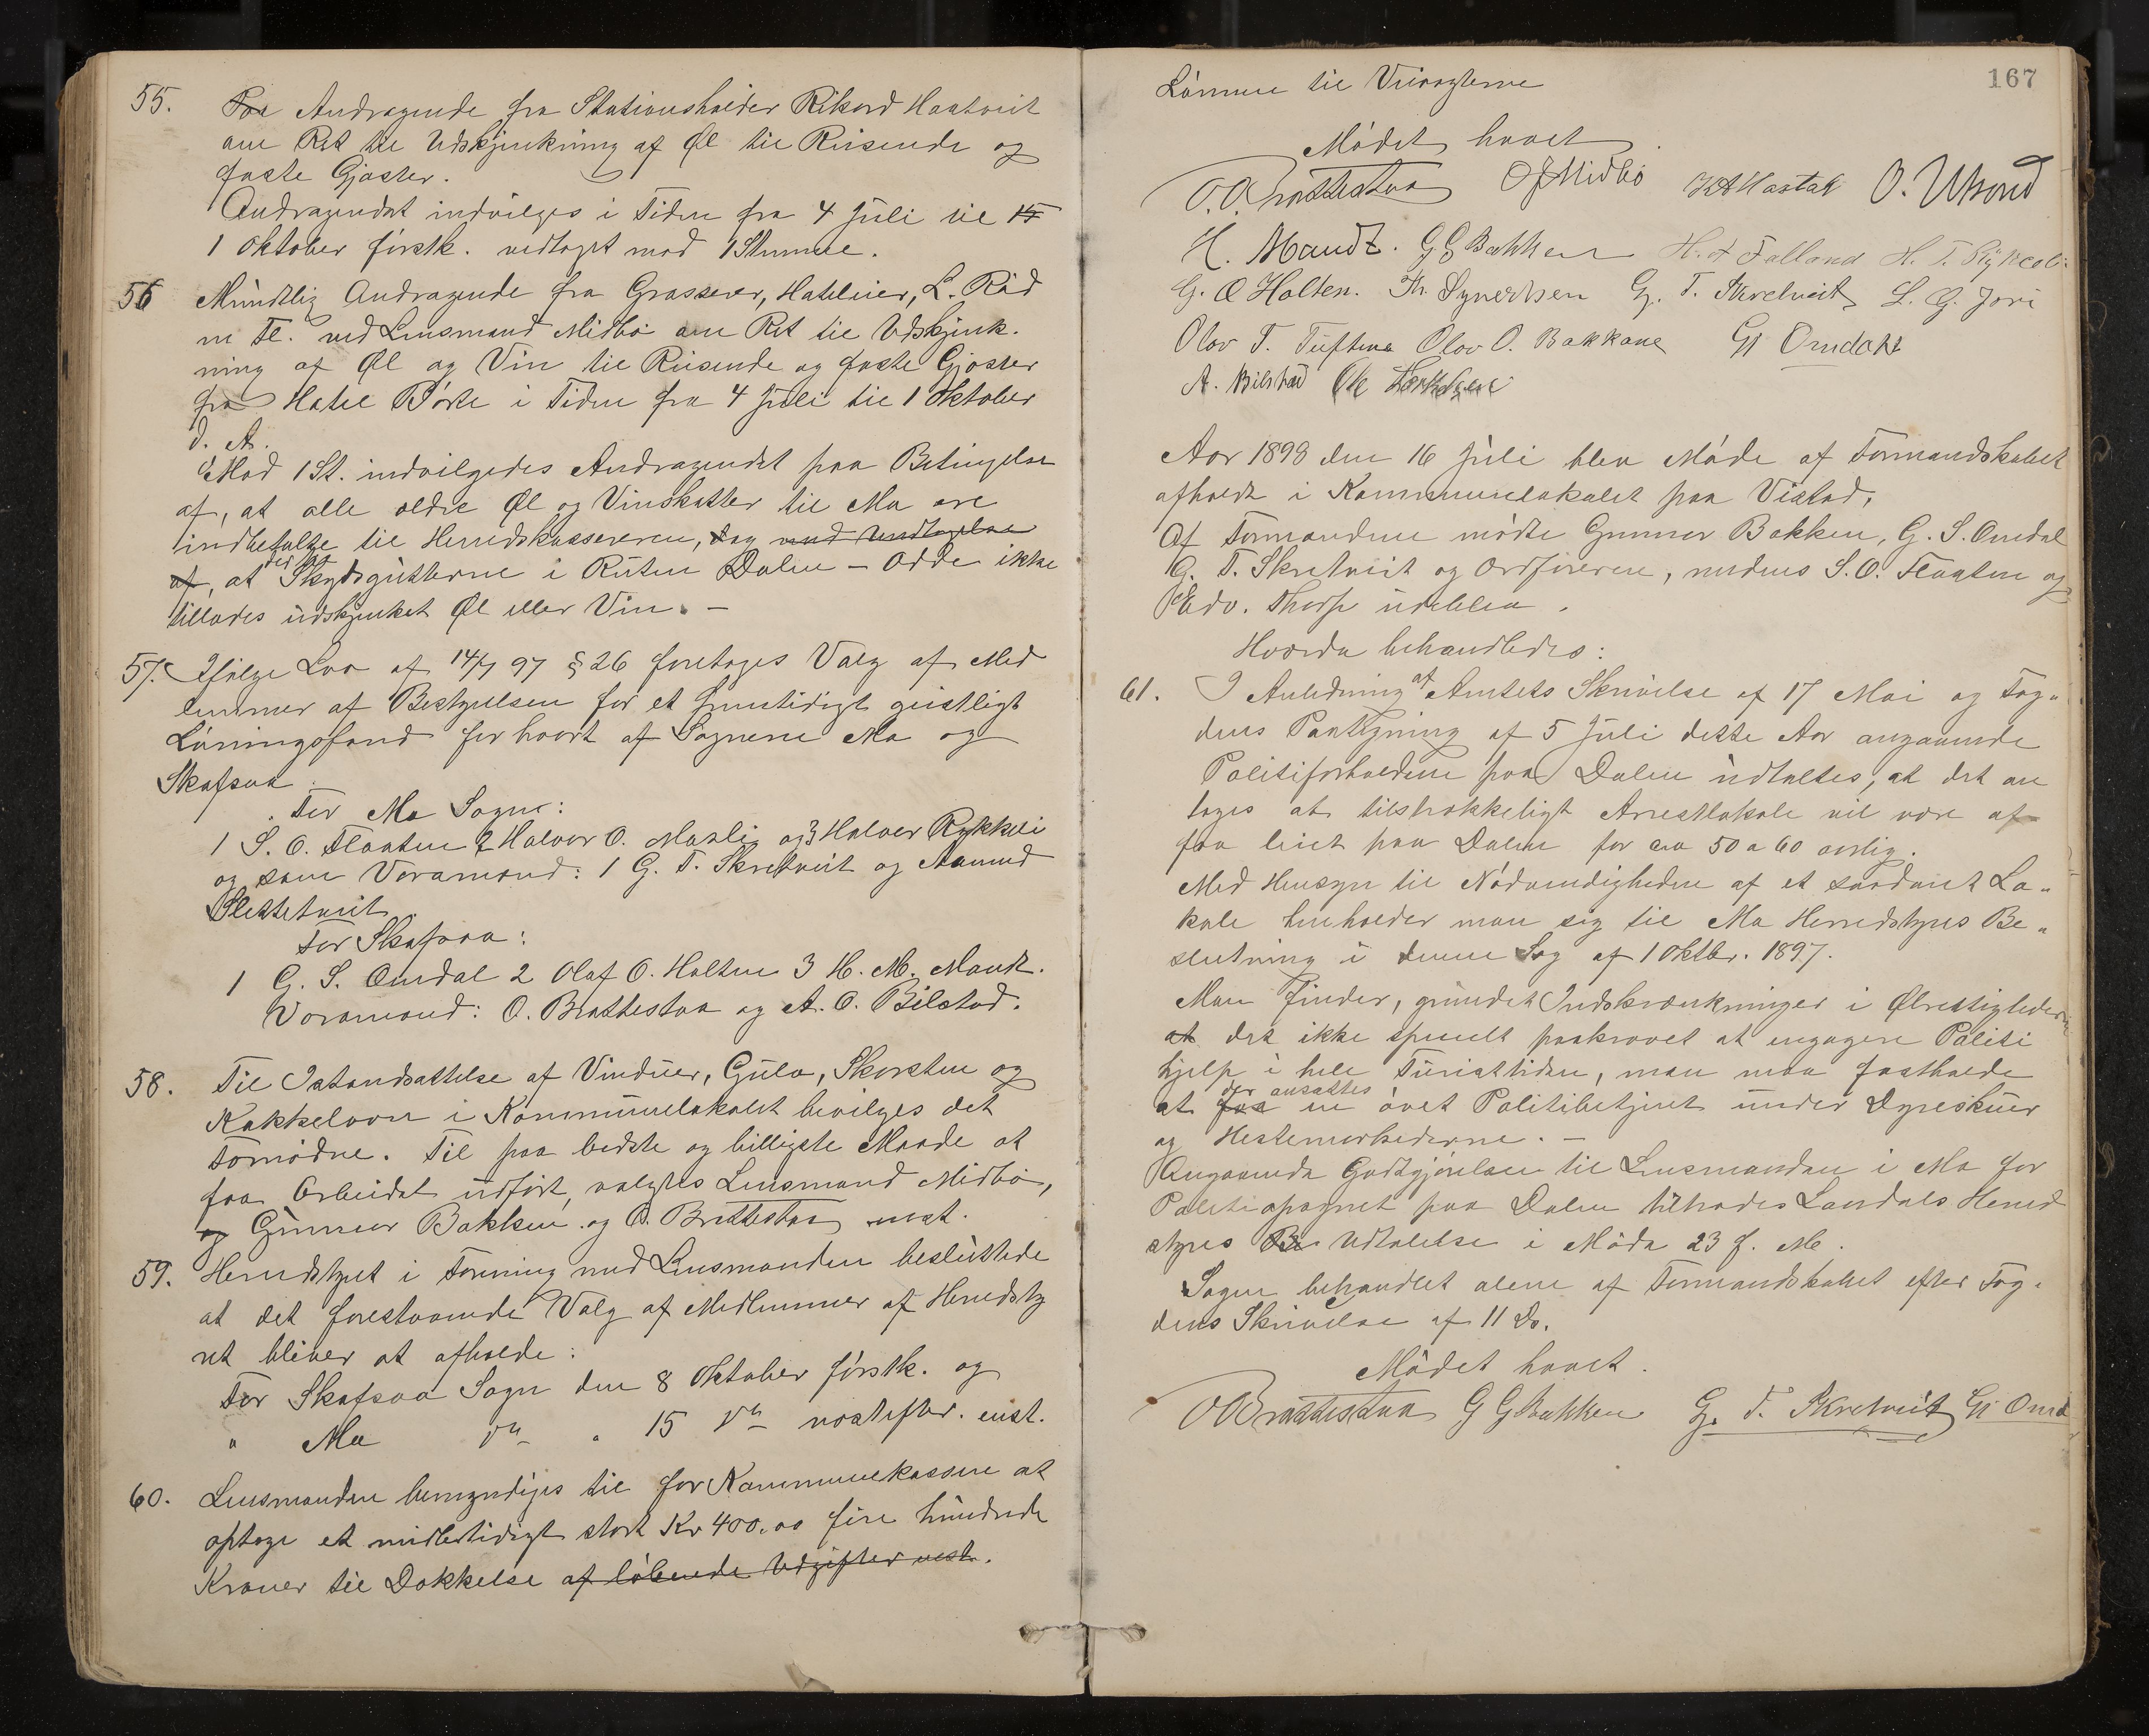 55. Paa Andragende fra Stationsholder Rikard Haatveit
om Ret til Udskjænkning af Øl til Reisende og
faste Gjæster.
Andragendet indvilges i Tiden fra 4 Juli til 15
1 Oktober førstk. vedtaget mod 1 Stemme.
56 Mundtlig Andragende fra Grosserer, Hoteleier, L. Rød
m Fl. ved Lensmand Midbø om Ret til Udskjænk-
ning af Øl og Vin til Reisende og faste Gjæster
fra Hotel Børte i Tiden fra 4 Juli til 1 Oktober
d. A.
Mod 1 St. indvilgedes Andragendet paa Betingelse
af, at alle ældre Øl og Vinskatter til Mo ere
indbetalte til Herredskassereren, dog med Undtagelse
af, at Skydsgutterne i Ruten Dalen – Odde ikke
tillades udskjænket Øl eller Vin. –
57. Ifølge Lov af 14/7 97 § 26 foretages Valg af Med
lemmer af Bestyrelsen for et fremtidigt geistligt
Lønningsfond for hvert af Sognene Mo og
Skafsaa.
For Mo Sogn:
1 S. O. Flaaten 2 Halvor O. Mosli og 3 Halvor Rykkeli
og som Varamænd: 1 G. T. Skretveit og Aamund
Slettetveit.
For Skafsaa:
1 G. S. Omdal 2 Olaf O. Holten 3 H. M. Mandt.
Varamænd: O. Brattestaa og A. O. Bilstad.
58. Til Istandsættelse af Vinduer, Gulv, Skorsten og
Kakkelovn i Kommunelokalet bevilges det
Fornødne. Til paa bedste og billigste Maade at
faa Arbeidet udført, valgtes Lensmand Midbø,
og Gunnar Bakken og O. Brattestaa enst.
59. Herredstyret i Forening med Lensmanden besluttede
at det forestaaende Valg af Medlemmer af Herredsty
ret bliver at afholde:
For Skafsaa Sogn den 8 Oktober førstk. og
" Mo do " 15 do næstefter. enst.
60. Lensmanden bemyndiges til for Kommunekassen at
optage et midlertidigt stort Kr 400.00 fire hundrede
Kroner til Dækkelse af løbende Udgifter vest.
167
Lønnen til Veivogterne
Mødet hævet.
O. O. Brattestaa O J Midbø O. Utsond
H. Mandt. G G Bakken H. A Falland
G. O Holten. Th. Synertsen G. T. Skretveit L. G. Jore
Olav T. Tuftena Olav O. Bakkane GS Omdahl
A. Bilstad Ole
Aar 1898 den 16 Juli blev Møde af Formandskabet
afholdt i Kommunelokalet paa Vistad.
Af Formændene mødte Gunnar Bakken, G. S. Omdal
G. T. Skretveit og Ordføreren, medens S. O. Flaaten og
Edv. Thorp udeblev.
Hvorda behandledes:
61. I Anledning af Amtets Skrivelse af 17 Mai og Fog-
dens Paategning af 5 Juli dette Aar angaaende
Politiforholdene paa Dalen udtaltes, at det an
tages at tilstrækkeligt Arrestlokale vil være at
faa leiet paa Dalen for ca 50 a 60 aarlig.
Med Hensyn til Nødvendigheden af et saadant Lo-
kale henholder man sig til Mo Herredstyres Be-
slutning i denne Sag af 1 Oktbr. 1897.
Man finder, grundet Indskrænkninger i Ølrettighederne
at det ikke specielt paakrævet at engagere Politi
hjelp i hele Turisttiden, man maa fastholde
at der ansættes faa en øvet Politibetjent under Dyreskuer
og Hestemarkederne. –
Angaaende Godtgjørelsen til Lensmanden i Mo for
Politiopsynet paa Dalen tiltrædes Laurdals Herred
styres Be Udtalelse i Møde 23 f. M.
Sagen behandlet alene af Formandskabet efter Fog-
dens Skrivelse af 11 ds.
Mødet hævet.
O O Brattestaa G G Bakken G. T. Skretveit GS Omd